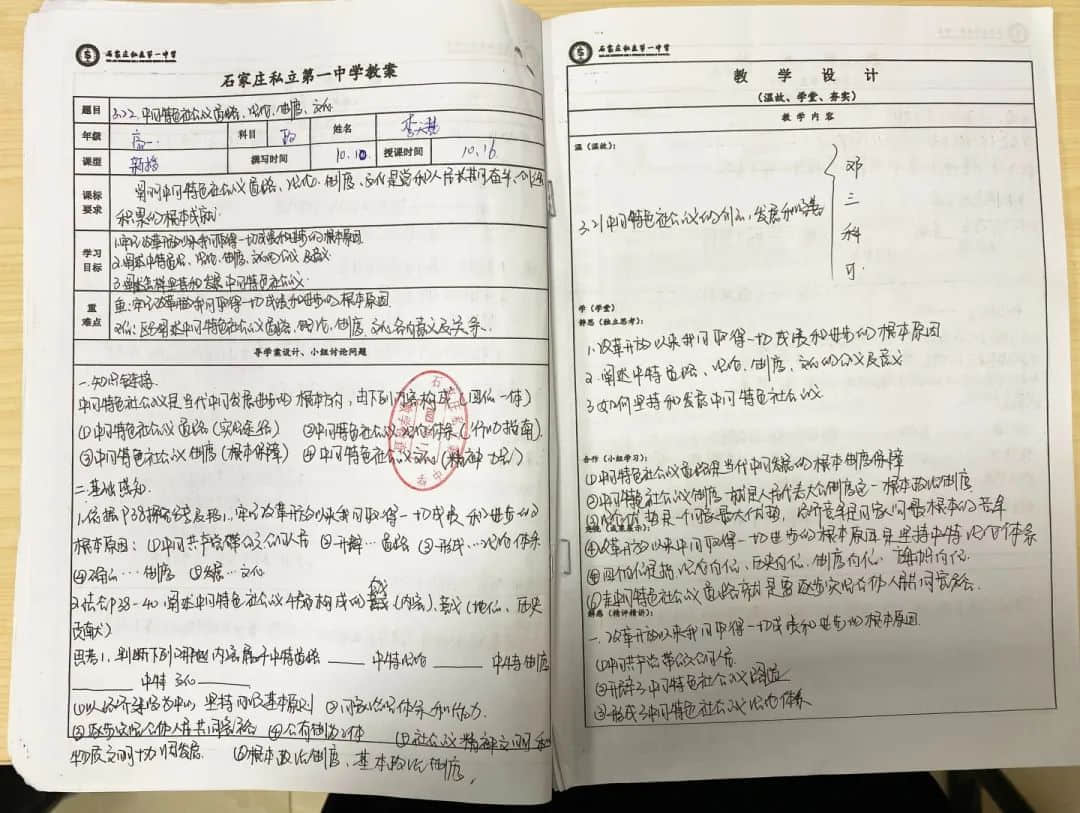 石家庄私立第一中学
石家庄私立第一中学教案
题目 3.2.2 中国特色社会主义道路、理论、制度、文化
年级 高一. 科目 政 姓名
课型 新授 撰写时间 10.10 授课时间 10.16
课标要求 阐明中国特色社会主义道路、理论、制度、文化是党和人民长期奋斗、创造
积累的根本成就.
学习目标 1.牢记改革开放以来我国取得一切成绩和进步的根本原因
2.阐述中特道路、理论、制度、文化的含义及意义
3.阐述怎样坚持和发展中国特色社会主义.
重难点 重:牢记改革开放我国取得一切成绩和进步的根本原因
难:区分阐述中国特色社会主义道路、理论、制度、文化各自意义及关系.
导学案设计、小组讨论问题
一.知识链接.
中国特色社会主义是当代中国发展进步的根本方向,由下列内容构成(四位一体)
①中国特色社会主义道路(实现途径) ②中国特色社会主义理论体系(行动指南).
③中国特色社会主义制度(根本保障) ④中国特色社会主义文化(精神力量)
二.基础感知.
1.依据P38探究与分享,牢记改革开放以来我国取得一切成绩和进步的
根本原因:①中国共产党带领人民 ②开辟…道路 ③形成…理论体系
④确立…制度 ⑤发展…文化
2.结合P38-40,阐述中国特色社会主义4部分构成的含义(内容)、意义(地位、历史
贡献)
思考1.判断下列哪些内容属于中特道路 ____ 中特理论 ____ 中特制度
____ 中特文化 ____
①以经济建设为中心,坚持四项基本原则 ②国家治理体系和能力.
③逐步实现全体人民共同富裕 ④公有制为主体 ⑤社会主义精神文明和
物质文明协调发展. ⑥根本政治制度、基本政治制度,
石家庄私立第一中学
教 学 设 计
(温故、学堂、夯实)
教 学 内 容
温(温故):
3.2.1中国特色社会主义的创立、发展和完善
邓
三
科
习.
学(学堂)
群思(独立思考):
1.改革开放以来我国取得一切成绩和进步的根本原因
2.阐述中特道路、理论、制度、文化的含义及意义
3.如何坚持和发展中国特色社会主义.
合作(小组学习):
①中国特色社会主义道路是当代中国发展的根本制度保障
②中国特色社会主义制度就是人民代表大会制度这一根本政治制度
(成果展示):
④改革开放以来中国取得一切进步的根本原因是坚持中特理论体系
⑤四个自信是指,理论自信、历史自信、制度自信、道路自信.
⑥走中国特色社会主义道路就是要逐步实现全体人民共同富裕.
解惑(精评精讲):
一.改革开放以来我国取得一切成绩和进步的根本原因.
①中国共产党带领人民.
②开辟了中国特色社会主义道路
③形成了中国特色社会主义理论体系